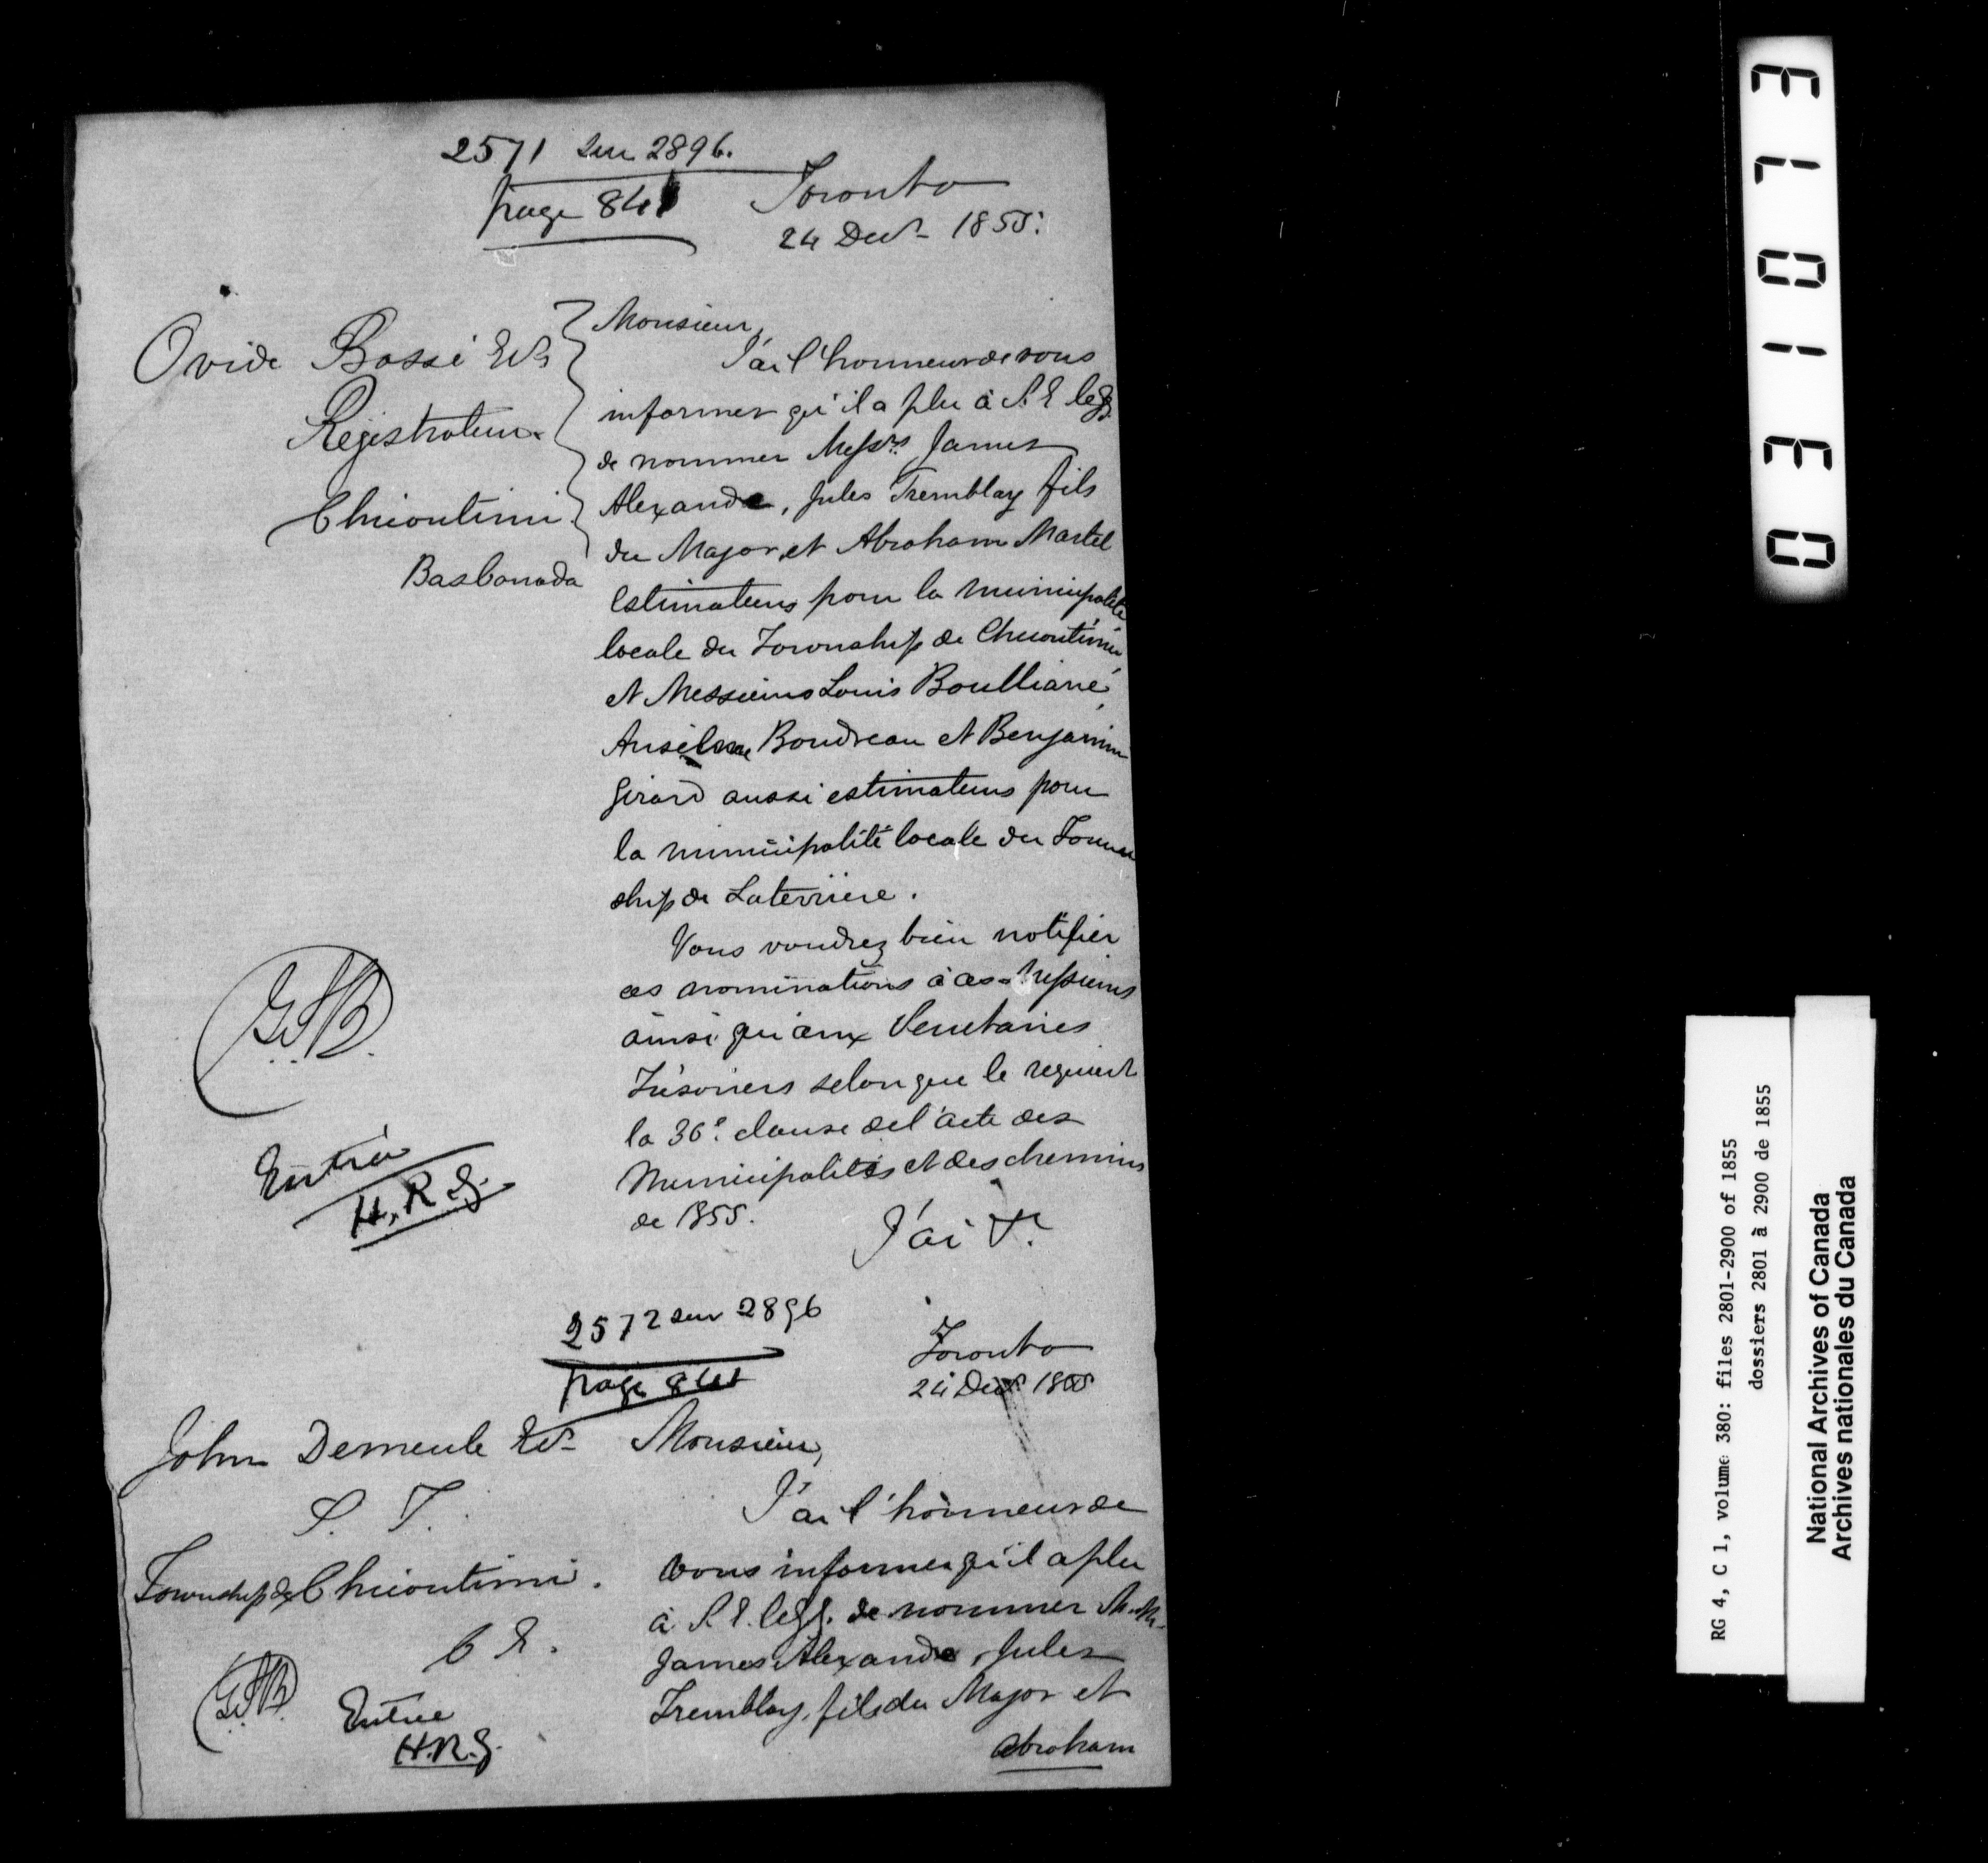 2571 sur 2896.
page 841
Toronto
24 Dect 1855.
Ovide Bossé Ecr
Régistrateur
Chicoutimi
Bas Canada
Monsieur,
J'ai l'honneur de vous
informer qu'il a plu à S. E. le GG.
de nommer Messrs James
Alexandre, Jules Tremblay fils
du Major, et Abraham Martel
Estimateurs pour la municipalité
locale du Township de Chicoutimi
et Messieurs Louis Boulliané,
Anselme Boudreau et Benjamin
Girard aussi estimateurs pour
la municipalité locale du Town
ship de Laterriere.
Vous voudrez bien notifier
ces nominations à ces Messieurs
ainsi qu'aux Secretaires
Trésoriers selon que le requiert
la 36e. clause de l'acte des
Municipalités et des chemins
de 1855.
J'ai &c.
Entrée
H. R. G.
2572 sur 2896
page 841
Toronto
24 Dect 1855
John Demeule Ecr
S. T.
Township de Chicoutimi.
C E.
Monsieur,
J'ai l'honneur de
vous informer qu'il a plu
à S. E. le GG. de nommer M.M.
James Alexandre, Jules
Tremblay, fils du Major et
Abraham
Entrée
H.R.G.
03101713
RG 4, C 1, volume 380: files 2801-2900 of 1855
dossiers 2801 à 2900 de 1855
National Archives of Canada
Archives nationales du Canada